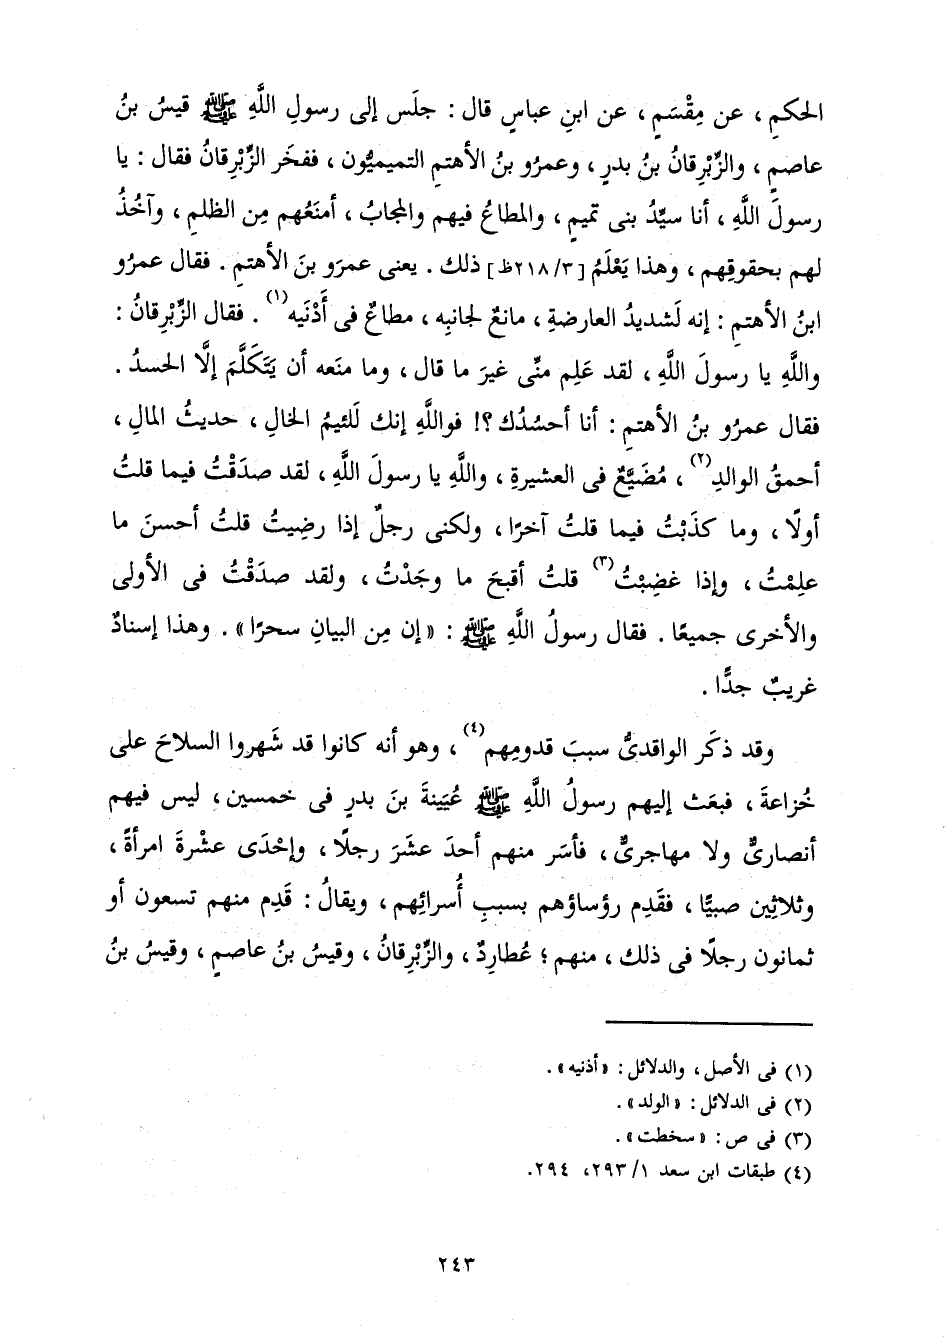 الحكمِ ، عن مِقْسَمٍ ، عن ابنِ عباسٍ قال : جلَس إلى رسولِ اللَّهِ ﷺ قيسُ بنُ
عاصمٍ ، والزِّبْرِقانُ بنُ بدرٍ ، وعمرُو بنُ الأهتمِ التميميُّون ، ففخَر الزِّبْرِقانُ فقال : يا
رسولَ اللَّهِ ، أنا سيِّدُ بنى تميمٍ ، والمطاعُ فيهم والمجابُ ، أمنَعُهم مِن الظلمِ ، وآخُذُ
لهم بحقوقِهم ، وهذا يَعْلَمُ [٢١٨/٣ظ] ذلك . يعنى عمرَو بنَ الأهتمِ . فقال عمرُو
ابنُ الأهتمِ : إنه لَشديدُ العارضةِ ، مانعٌ لجانبِه ، مطاعٌ فى أَدْنَيه(١) . فقال الزِّبْرِقانُ :
واللَّهِ يا رسولَ اللَّهِ ، لقد عَلِم منِّى غيرَ ما قال ، وما منَعه أن يَتَكلَّمَ إلَّا الحسدُ .
فقال عمرُو بنُ الأهتمِ : أنا أحسُدُك ؟! فواللَّهِ إنك لَلئيمُ الخالِ ، حديثُ المالِ ،
أحمقُ الوالدِ(٢) ، مُضَيَّعٌ فى العشيرةِ ، واللَّهِ يا رسولَ اللَّهِ ، لقد صدَقْتُ فيما قلتُ
أولًا ، وما كذَبْتُ فيما قلتُ آخرًا ، ولكنى رجلٌ إذا رضِيتُ قلتُ أحسنَ ما
علِمْتُ ، وإذا غضِبْتُ(٣) قلتُ أقبحَ ما وجَدْتُ ، ولقد صدَقْتُ فى الأولى
والأخرى جميعًا . فقال رسولُ اللَّهِ ﷺ : «إن مِن البيانِ سحرًا» . وهذا إسنادٌ
غريبٌ جدًّا .
وقد ذكَر الواقدىُّ سببَ قدومِهم(٤) ، وهو أنه كانوا قد شَهروا السلاحَ على
خُزاعةَ ، فبعَث إليهم رسولُ اللَّهِ ﷺ عُيَينةَ بنَ بدرٍ فى خمسين ، ليس فيهم
أنصارىٌّ ولا مهاجرىٌّ ، فأسَر منهم أحدَ عشَرَ رجلًا ، وإحْدَى عشْرةَ امرأةً ،
وثلاثِين صبيًّا ، فقَدِم رؤساؤهم بسببِ أُسرائِهم ، ويقالُ : قَدِم منهم تسعون أو
ثمانون رجلًا فى ذلك ، منهم ؛ عُطارِدٌ ، والزِّبْرِقانُ ، وقيسُ بنُ عاصمٍ ، وقيسُ بنُ
(١) فى الأصل ، والدلائل : «أذنيه» .
(٢) فى الدلائل : «الولد» .
(٣) فى ص : «سخطت» .
(٤) طبقات ابن سعد ٢٩٣/١، ٢٩٤.
٢٤٣